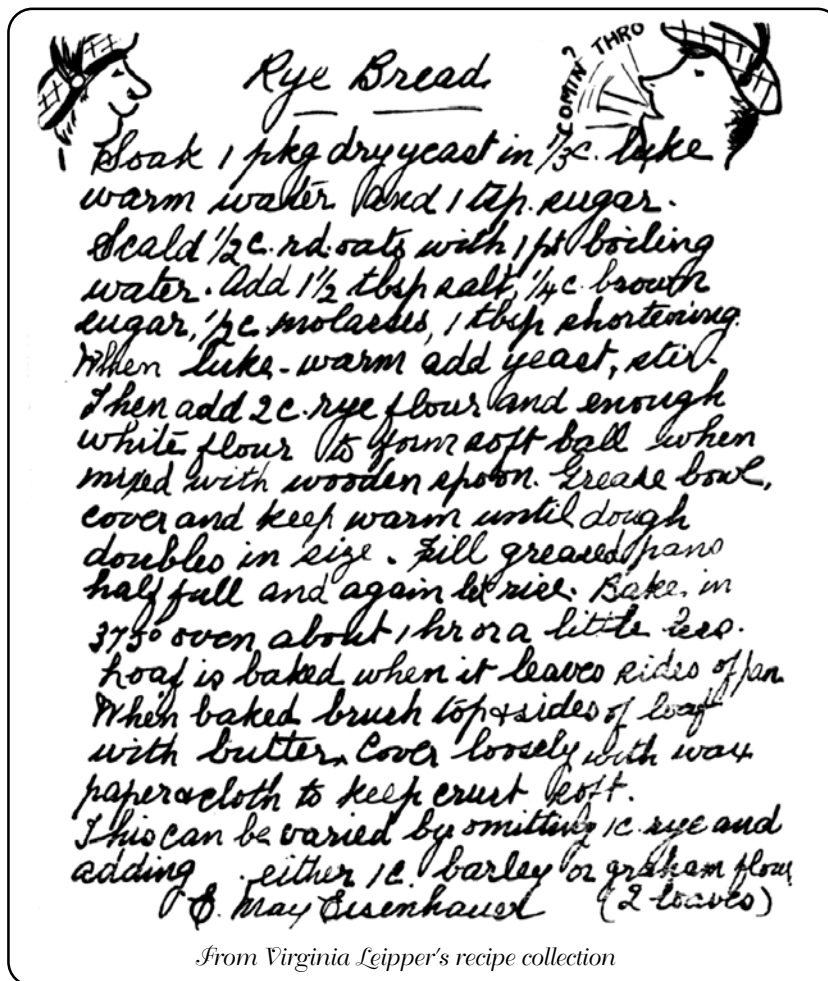 Rye Bread
COMIN' THRO
Soak 1 pkg dry yeast in 1/3 c. luke
warm water and 1 tsp. sugar.
Scald 1/2 c. rd. oats with 1 pt boiling
water. Add 1 1/2 tbsp salt, 1/4 c. brown
sugar, 1/2 c. molasses, 1 tbsp shortening.
When luke-warm add yeast, stir.
Then add 2 c. rye flour and enough
white flour to form soft ball when
mixed with wooden spoon. Grease bowl,
cover and keep warm until dough
doubles in size. Fill greased pans
half full and again let rise. Bake in
375° oven about 1 hr or a little less.
Loaf is baked when it leaves sides of pan.
When baked brush top & sides of loaf
with butter. Cover loosely with wax
paper & cloth to keep crust soft.
This can be varied by omitting 1c. rye and
adding either 1c. barley or graham flour
E. May Eisenhauer (2 loaves)
From Virginia Leipper's recipe collection